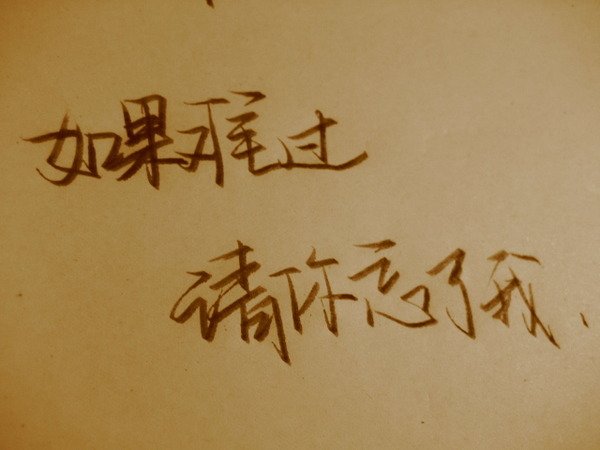 如果难过
请你忘了我.